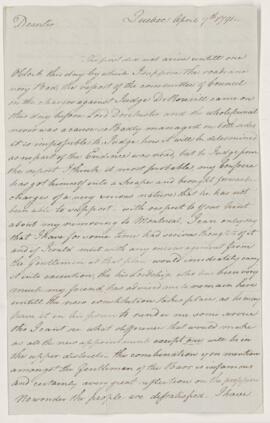 Quebec April 7th 1791.
Dear Sir
The post did not arrive untill one
oClock this day by which I suppose the roads are
very Bad, the report of the committee of Council
on the charges against Judge De Rouvill came on
this day before Lord Dorchester and the whole
never was a cause so Badly managed on both sides
it is impossible to Judge how it will be determined
as no part of the Evidence was read, but to Judge from
the report I think it most probable, my
has got himself into a Scrape and brought forward
charges of a very serious nature that he has not
been able to support. with respect to your hint
about my removing to Montreal, I can only say
that I have for some time had serious thoughts of it
and if I could meet with any encouragement from
the Gentlemen at that place would immediately carry
it into execution, tho his Lordship who has been very
much my friend has advised me to remain here
untill the new constitution takes place, as he may
have it in his power to render me some service
tho I cant see what difference that would make
as all the new appointments except will be in
the upper districts. the combination you mention
amongst the Gentlemen of the Barr is infamous
and certainly a very great reflection on the
No wonder the people are dissatisfied. I have